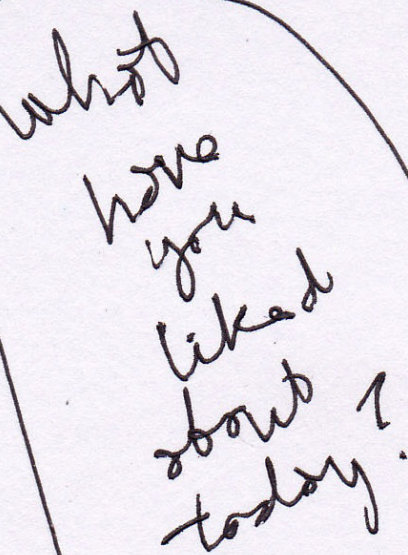 what
have
you
liked
about
today?